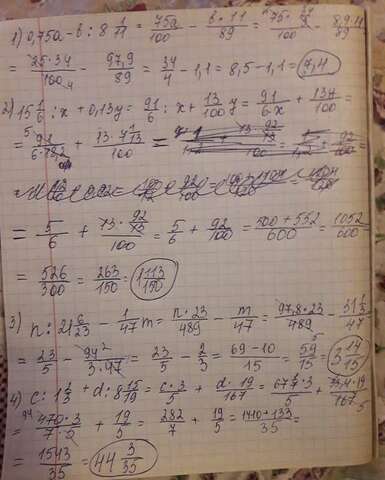 1) 0,75a - b : 8 1/11 = 75a/100 - b·11/89 = 75·34/100 - 8,9·11/89
= 25·34/100 - 97,9/89 = 34/4 - 1,1 = 8,5 - 1,1 = 7,4
2) 15 1/6 : x + 0,13y = 91/6 : x + 13/100 y = 91/6·x + 13y/100 =
= 91/6·18,2 + 13·7 1/13/100 =
= 5/6 + 13·92/13/100 = 5/6 + 92/100 = 500+552/600 = 1052/600 =
= 526/300 = 263/150 = 1 113/150
3) n : 21 6/23 - 1/47 m = n·23/489 - m/47 = 97,8·23/489 - 31 1/3/47
= 23/5 - 94/3·47 = 23/5 - 2/3 = 69-10/15 = 59/15 = 3 14/15
4) c : 1 2/3 + d : 8 15/19 = c·3/5 + d·19/167 = 67 1/7·3/5 + 33,4·19/167
= 470·3/7·5 + 19/5 = 282/7 + 19/5 = 1410+133/35 =
= 1543/35 = 44 3/35